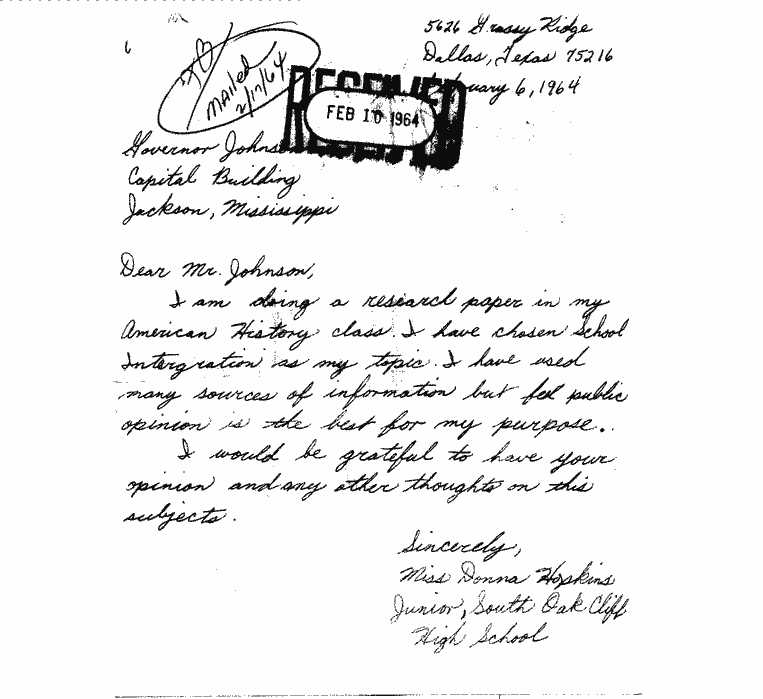 5626 Grassy Ridge
Dallas, Texas 75216
February 6, 1964
Mailed
2/17/64
RECEIVED
FEB 10 1964
Governor Johnson
Capital Building
Jackson, Mississippi
Dear Mr. Johnson,
I am doing a research paper in my
American History class. I have chosen School
Intergration as my topic. I have used
many sources of information but feel public
opinion is the best for my purpose.
I would be grateful to have your
opinion and any other thoughts on this
subjects.
Sincerely,
Miss Donna Hopkins
Junior, South Oak Cliff
High School